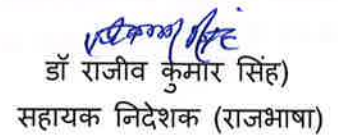 डॉ राजीव कुमार सिंह)
सहायक निदेशक (राजभाषा)